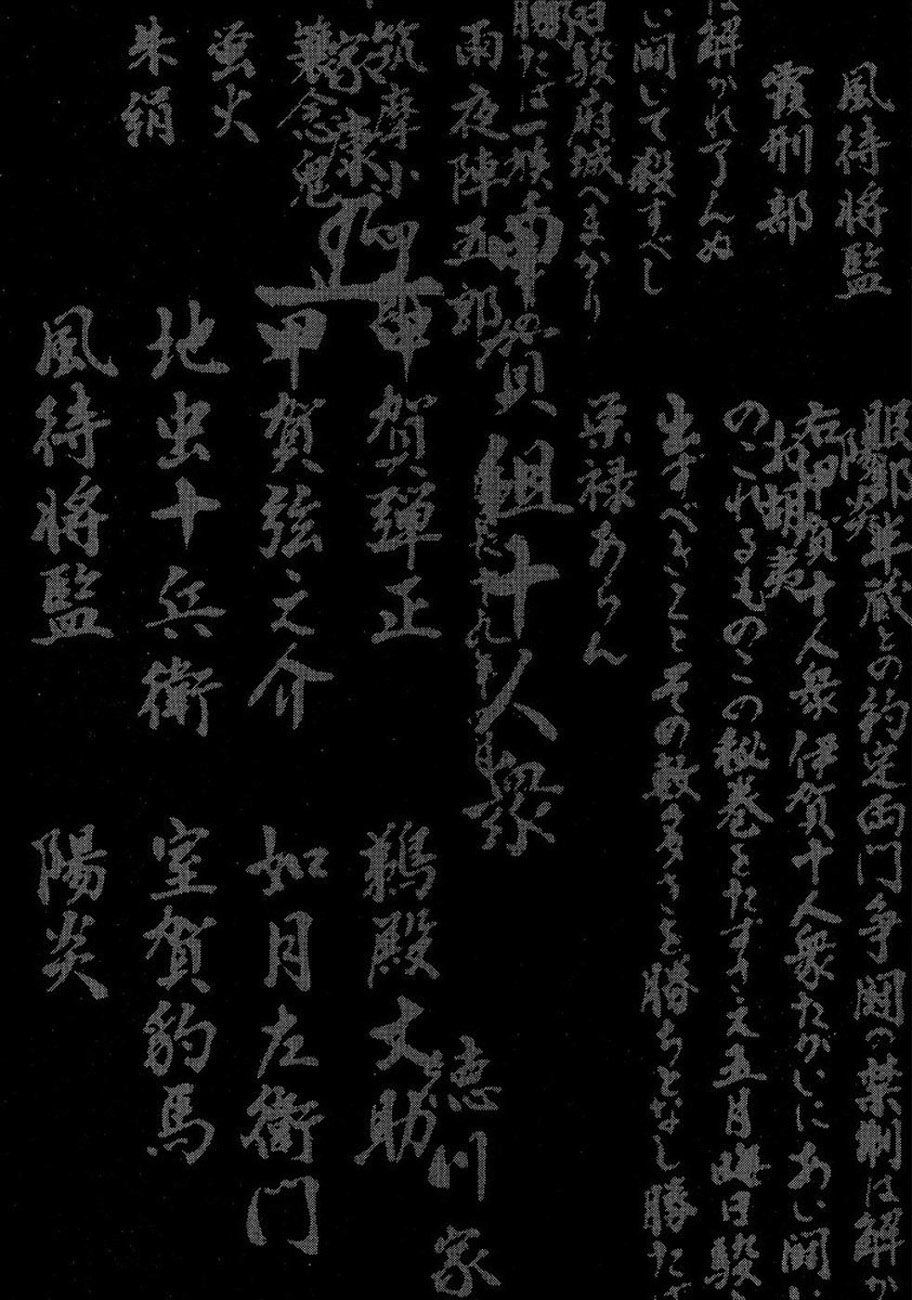 風待将監
霞刑部
は解かれ了んぬ
い闘いて殺すべし
駿府城へまかり
勝たば一族
雨夜陣五郎
筑摩小
簔念鬼
蛍火
朱絹
服部半蔵との約定両門争闘の禁制は解か
陽炎
右甲賀十人衆伊賀十人衆たがいにあい闘い
お胡夷
のこれるものこの秘巻をたずさえ五月晦日駿
生ずべきことその数多きを勝ちとなし勝たば
栄禄あらん
甲賀組十人衆
徳川家
甲賀弾正
甲賀弦之介
地虫十兵衛
風待将監
鵜殿丈助
如月左衛門
室賀豹馬
陽炎